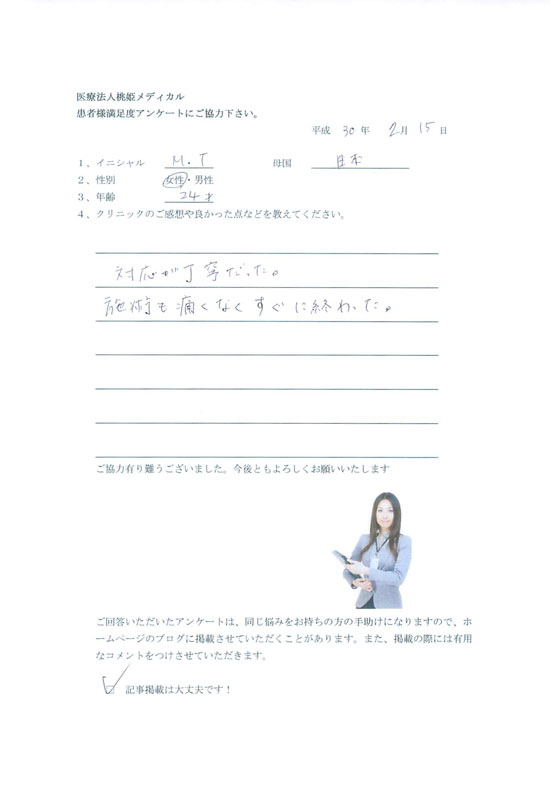 医療法人桃姫メディカル
患者様満足度アンケートにご協力下さい。
平成 30 年 2月 15 日
1、イニシャル M.T 母国 日本
2、性別 女性・男性
3、年齢 24才
4、クリニックのご感想や良かった点などを教えてください。
対応が丁寧だった。
施術も痛くなくすぐに終わった。
ご協力有り難うございました。今後ともよろしくお願いいたします
ご回答いただいたアンケートは、同じ悩みをお持ちの方の手助けになりますので、ホ
ームページのブログに掲載させていただくことがあります。また、掲載の際には有用
なコメントをつけさせていただきます。
記事掲載は大丈夫です！